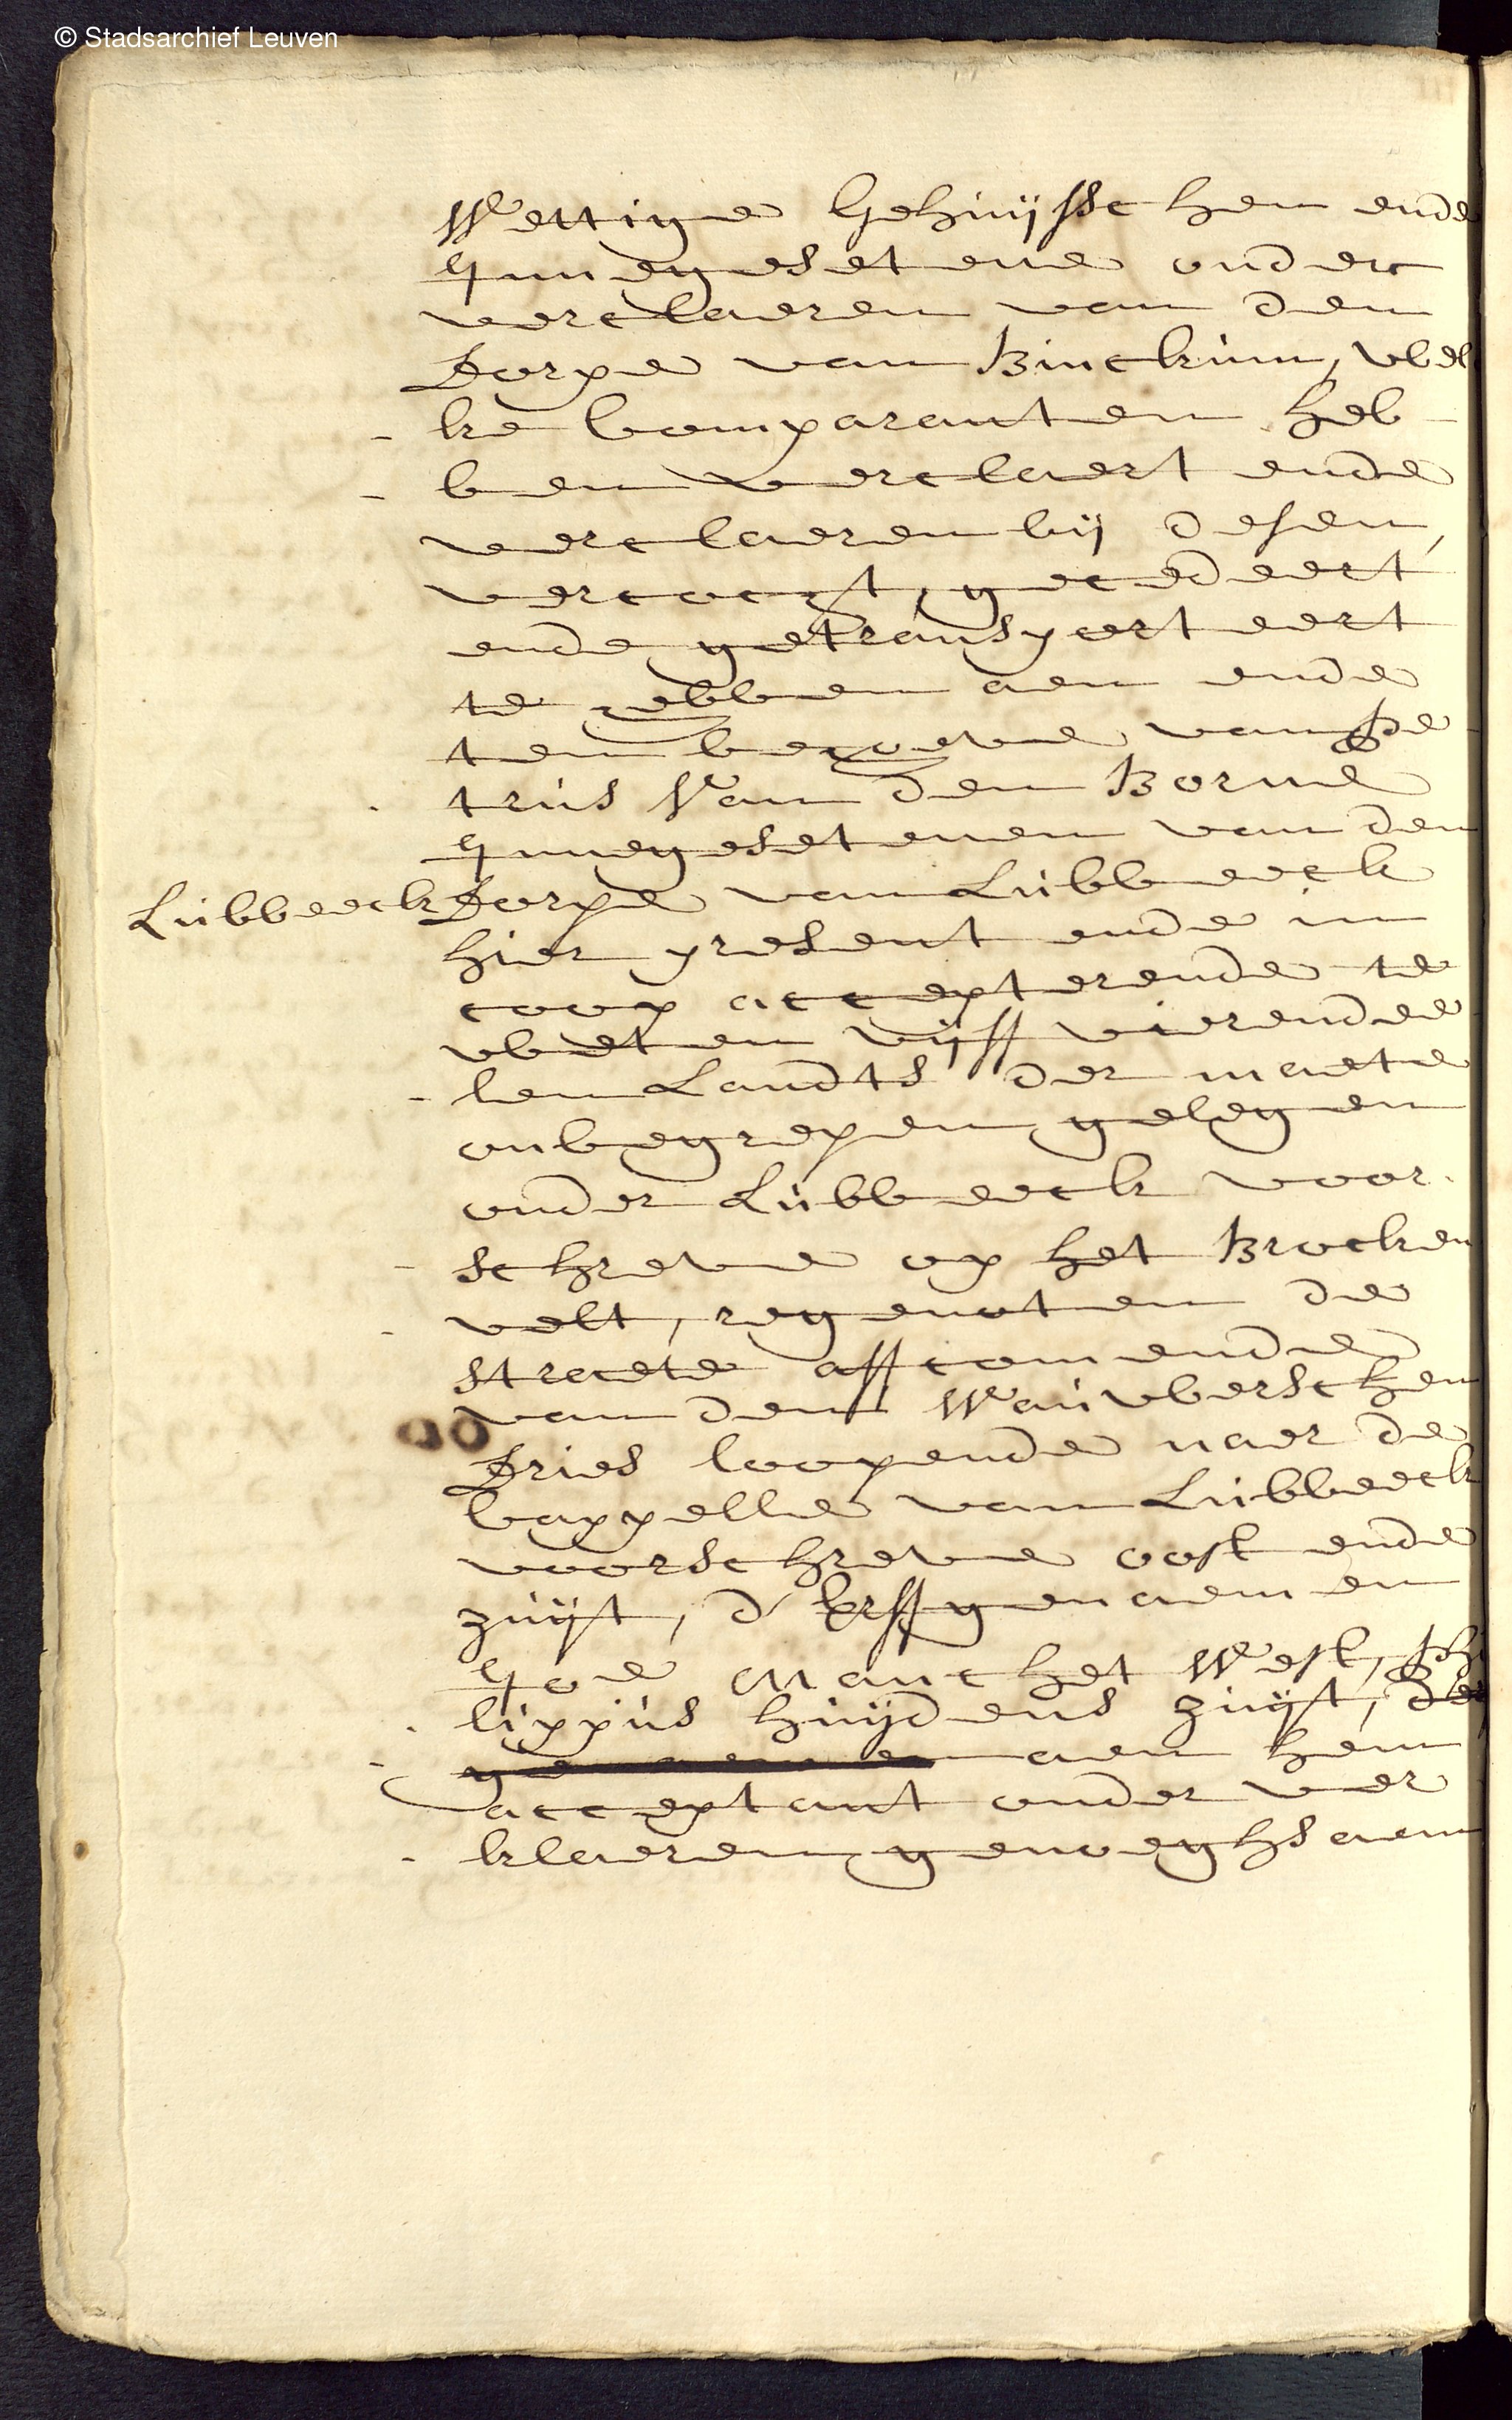 © Stadsarchief Leuven
Wettige Gehuijsschen ende
Innegesetene onder
verclaeren van den
Dorpe van Binckum, wel
ke Comparanten heb
ben verclaert ende
verclaeren bij desen,
vercocht, gecedeert
ende getransporteert
te hebben aen ende
ten behoeve van Pe
trus Van den Borne
Innegesetenen van den
Lubbeeck Dorpe van Lubbeeck
hier present ende in
coop accepterende te
weten vijff vierendee
len Landts der maete
onbegrepen gelegen
onder Lubbeeck voor
schreve op het Brocken
velt, regenoten de
straete affcomende
van den Wauwerschen
Dries loopende naer de
Cappelle van Lubbeeck
voorschreve oost ende
zuijt, d'erffgenaemen
Joe Manchet West, Phi
lippus huijdens zuijt, de
aen hem
acceptant onder ver
klaeren genoeghsaem